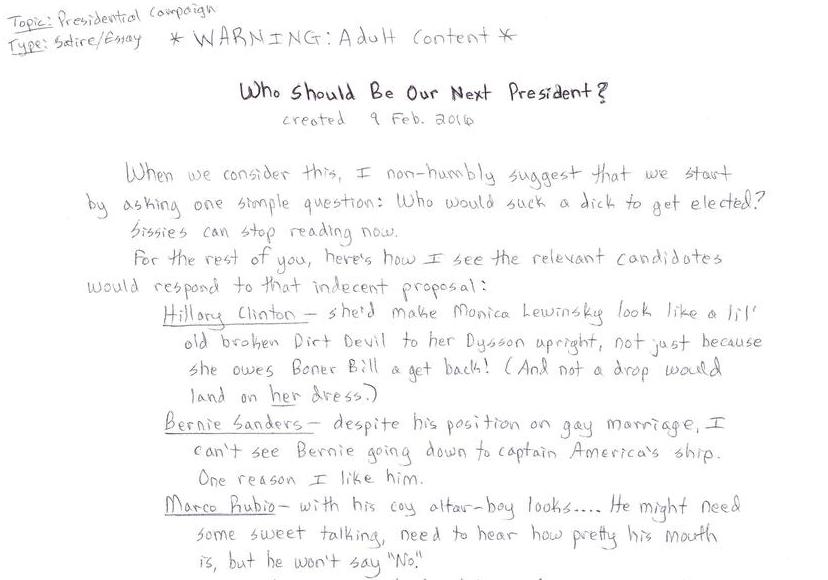 Topic: Presidential Campaign
Type: Satire/Essay * WARNING: Adult Content *
Who Should Be Our Next President?
created 9 Feb. 2016
When we consider this, I non-humbly suggest that we start
by asking one simple question: Who would suck a dick to get elected?
Sissies can stop reading now.
For the rest of you, here's how I see the relevant candidates
would respond to that indecent proposal:
Hillary Clinton - she'd make Monica Lewinsky look like a lil'
old broken Dirt Devil to her Dysson upright, not just because
she owes Boner Bill a get back! (And not a drop would
land on her dress.)
Bernie Sanders - despite his position on gay marriage, I
can't see Bernie going down to captain America's ship.
One reason I like him.
Marco Rubio - with his coy altar-boy looks.... He might need
some sweet talking, need to hear how pretty his mouth
is, but he won't say "No."